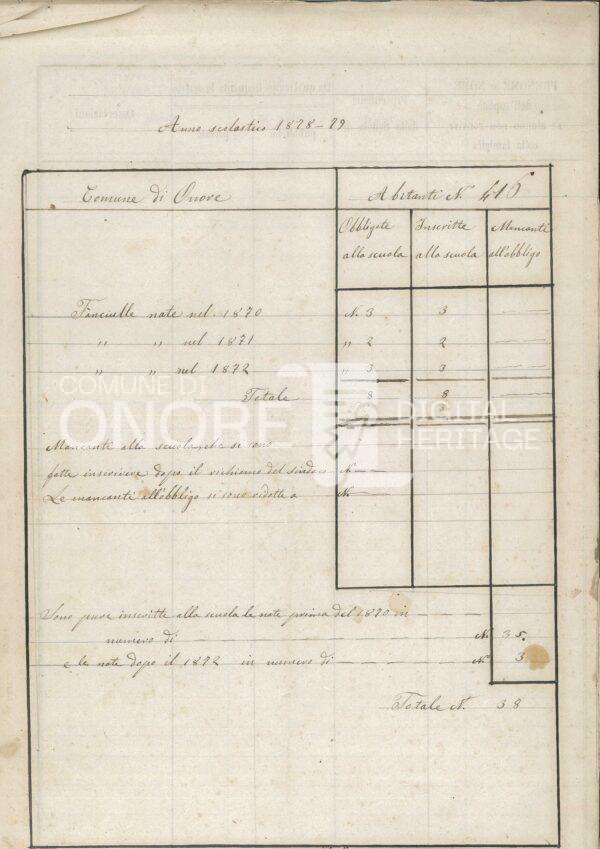 Anno scolastico 1878-79
Comune di Onore
Abitanti N. 416
Obbligate alla scuola
Inscritte alla scuola
Mancanti all'obbligo
Fanciulle nate nel 1870 N. 3 3 —
" " nel 1871 " 2 2 —
" " nel 1872 " 3 3 —
Totale 8 8
COMUNE DI
ONORE
DIGITAL
HERITAGE
Mancanti alla scuola che si sono
fatte inscrivere dopo il richiamo del sindaco N. —
Le mancanti all'obbligo si sono ridotte a N. —
Sono pure inscritte alla scuola le nate prima del 1870 in
numero di — N. 35.
e le nate dopo il 1872 in numero di — N. 3
Totale N. 38